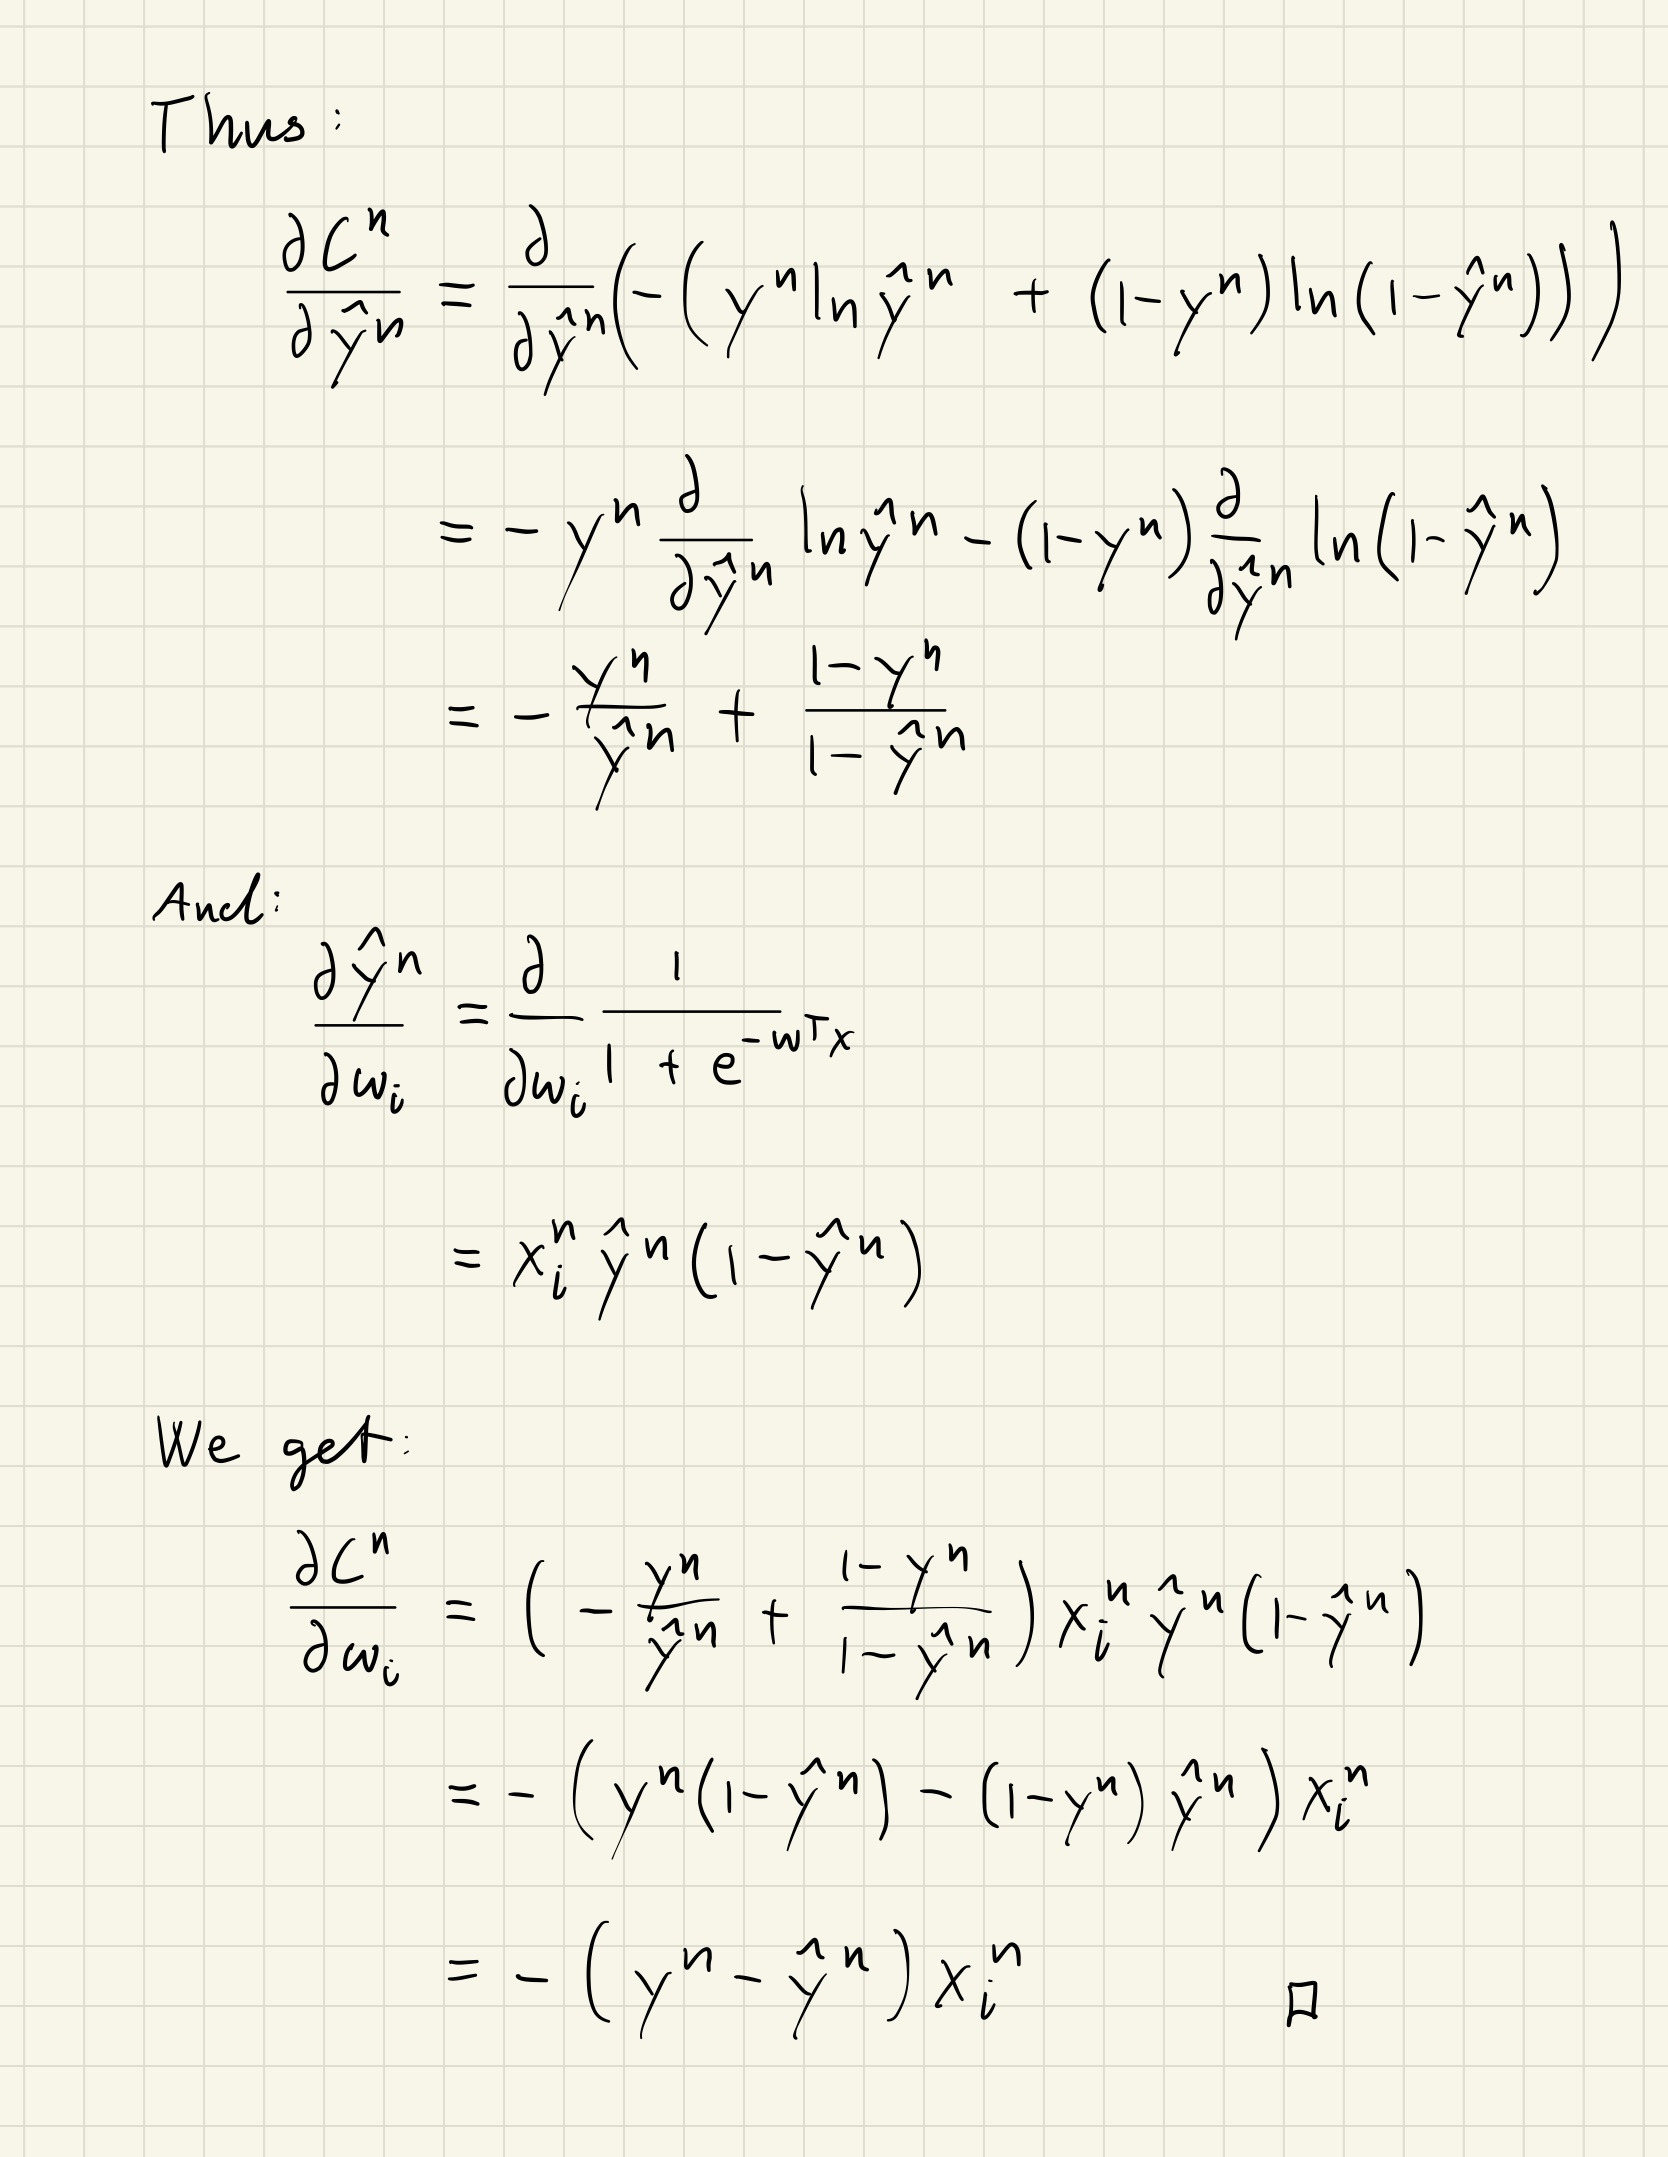 Thus:
∂Cⁿ/∂ŷⁿ = ∂/∂ŷⁿ (−(yⁿ ln ŷⁿ + (1−yⁿ) ln(1−ŷⁿ)))
= − yⁿ ∂/∂ŷⁿ ln ŷⁿ − (1−yⁿ) ∂/∂ŷⁿ ln(1−ŷⁿ)
= − yⁿ/ŷⁿ + (1−yⁿ)/(1−ŷⁿ)
And:
∂ŷⁿ/∂wᵢ = ∂/∂wᵢ 1/(1 + e^(−wᵀx))
= xᵢⁿ ŷⁿ (1−ŷⁿ)
We get:
∂Cⁿ/∂wᵢ = (− yⁿ/ŷⁿ + (1−yⁿ)/(1−ŷⁿ)) xᵢⁿ ŷⁿ (1−ŷⁿ)
= − (yⁿ(1−ŷⁿ) − (1−yⁿ) ŷⁿ) xᵢⁿ
= − (yⁿ − ŷⁿ) xᵢⁿ □